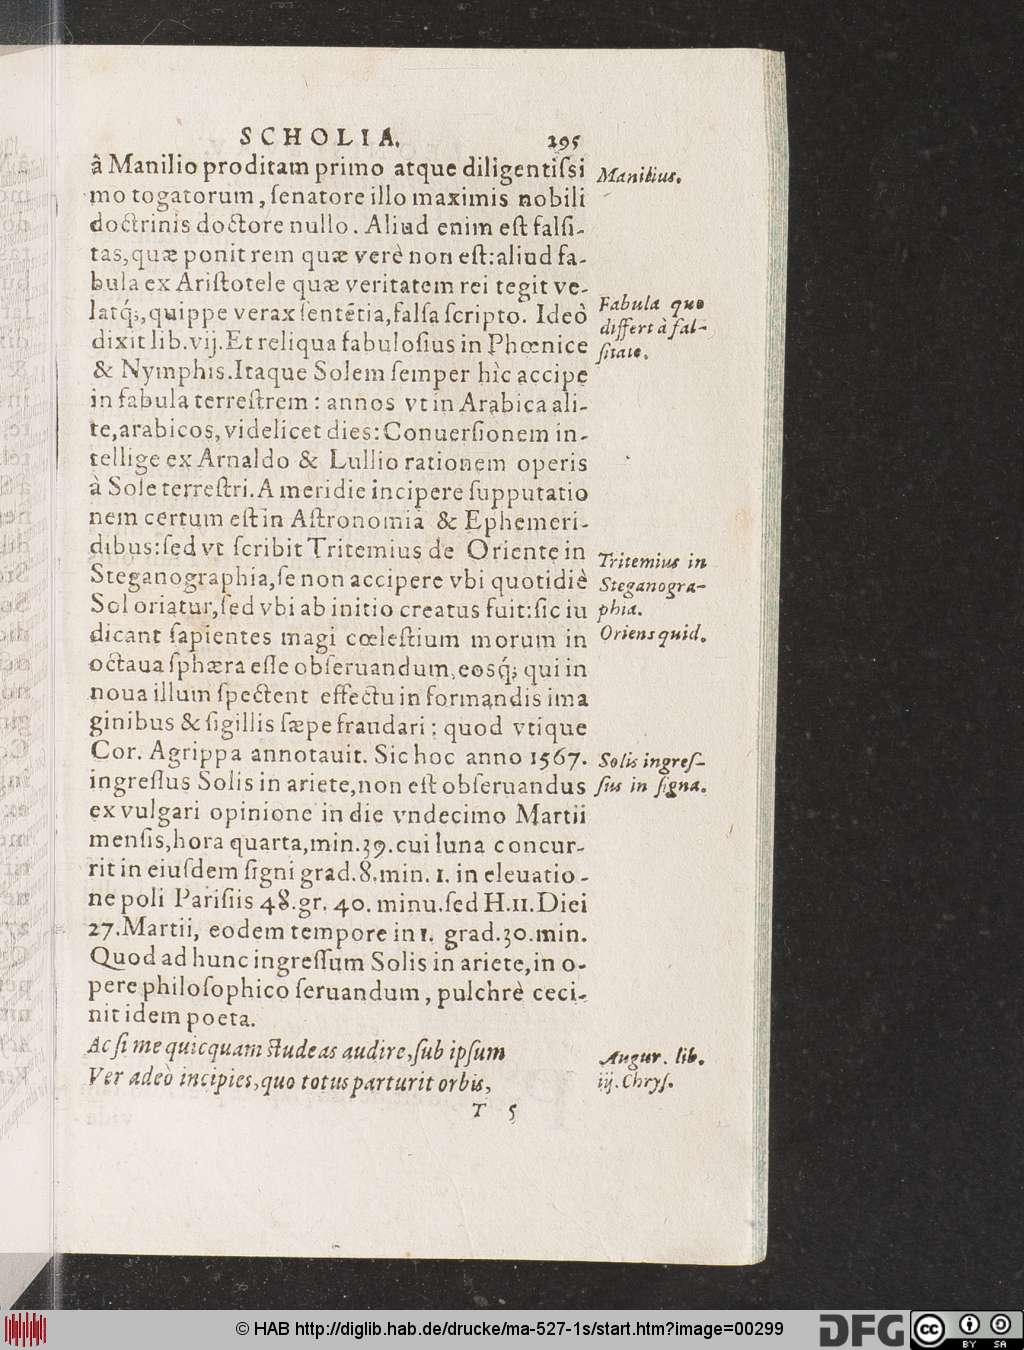 SCHOLIA. 295
â Manilio proditam primo atque diligentiſsi
mo togatorum, ſenatore illo maximis nobili
doctrinis doctore nullo. Aliud enim eſt falſi-
tas, quæ ponit rem quæ verè non eſt: aliud fa-
bula ex Ariſtotele quæ veritatem rei tegit ve-
latq́;, quippe verax ſentẽtia, falſa ſcripto. Ideò
dixit lib. vij. Et reliqua fabuloſius in Phœnice
& Nymphis. Itaque Solem ſemper hîc accipe
in fabula terreſtrem: annos vt in Arabica ali-
te, arabicos, videlicet dies: Conuerſionem in-
tellige ex Arnaldo & Lullio rationem operis
à Sole terreſtri. A meridie incipere ſupputatio
nem certum eſt in Aſtronomia & Ephemeri-
dibus: ſed vt ſcribit Tritemius de Oriente in
Steganographia, ſe non accipere vbi quotidiè
Sol oriatur, ſed vbi ab initio creatus fuit: ſic iu
dicant ſapientes magi cœleſtium morum in
octaua ſphæra eſſe obſeruandum, eosq́; qui in
noua illum ſpectent effectu in formandis ima
ginibus & ſigillis ſæpe fraudari: quod vtique
Cor. Agrippa annotauit. Sic hoc anno 1567.
ingreſſus Solis in ariete, non eſt obſeruandus
ex vulgari opinione in die vndecimo Martii
menſis, hora quarta, min. 39. cui luna concur-
rit in eiuſdem ſigni grad. 8. min. 1. in eleuatio-
ne poli Pariſiis 48. gr. 40. minu. ſed H. 11. Diei
27. Martii, eodem tempore in 1. grad. 30. min.
Quod ad hunc ingreſſum Solis in ariete, in o-
pere philoſophico ſeruandum, pulchrè ceci-
nit idem poeta.
Ac ſi me quicquam ſtudeas audire, ſub ipſum
Ver adeò incipies, quo totus parturit orbis,
T 5
Manilius.
Fabula quo
differt à fal-
ſitate.
Tritemius in
Steganogra-
phia.
Oriens quid.
Solis ingreſ-
ſus in ſigna.
Augur. lib.
iij. Chryſ.
© HAB http://diglib.hab.de/drucke/ma-527-1s/start.htm?image=00299
DFG
cc
BY SA